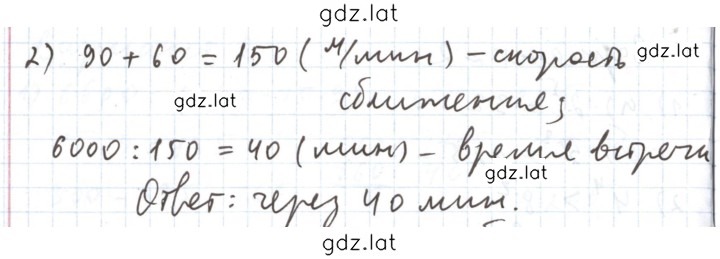 gdz.lat
2) 90 + 60 = 150 (м/мин) – скорость gdz.lat
gdz.lat сближения;
6000 : 150 = 40 (мин) – время встречи
gdz.lat
Ответ: через 40 мин.
gdz.lat